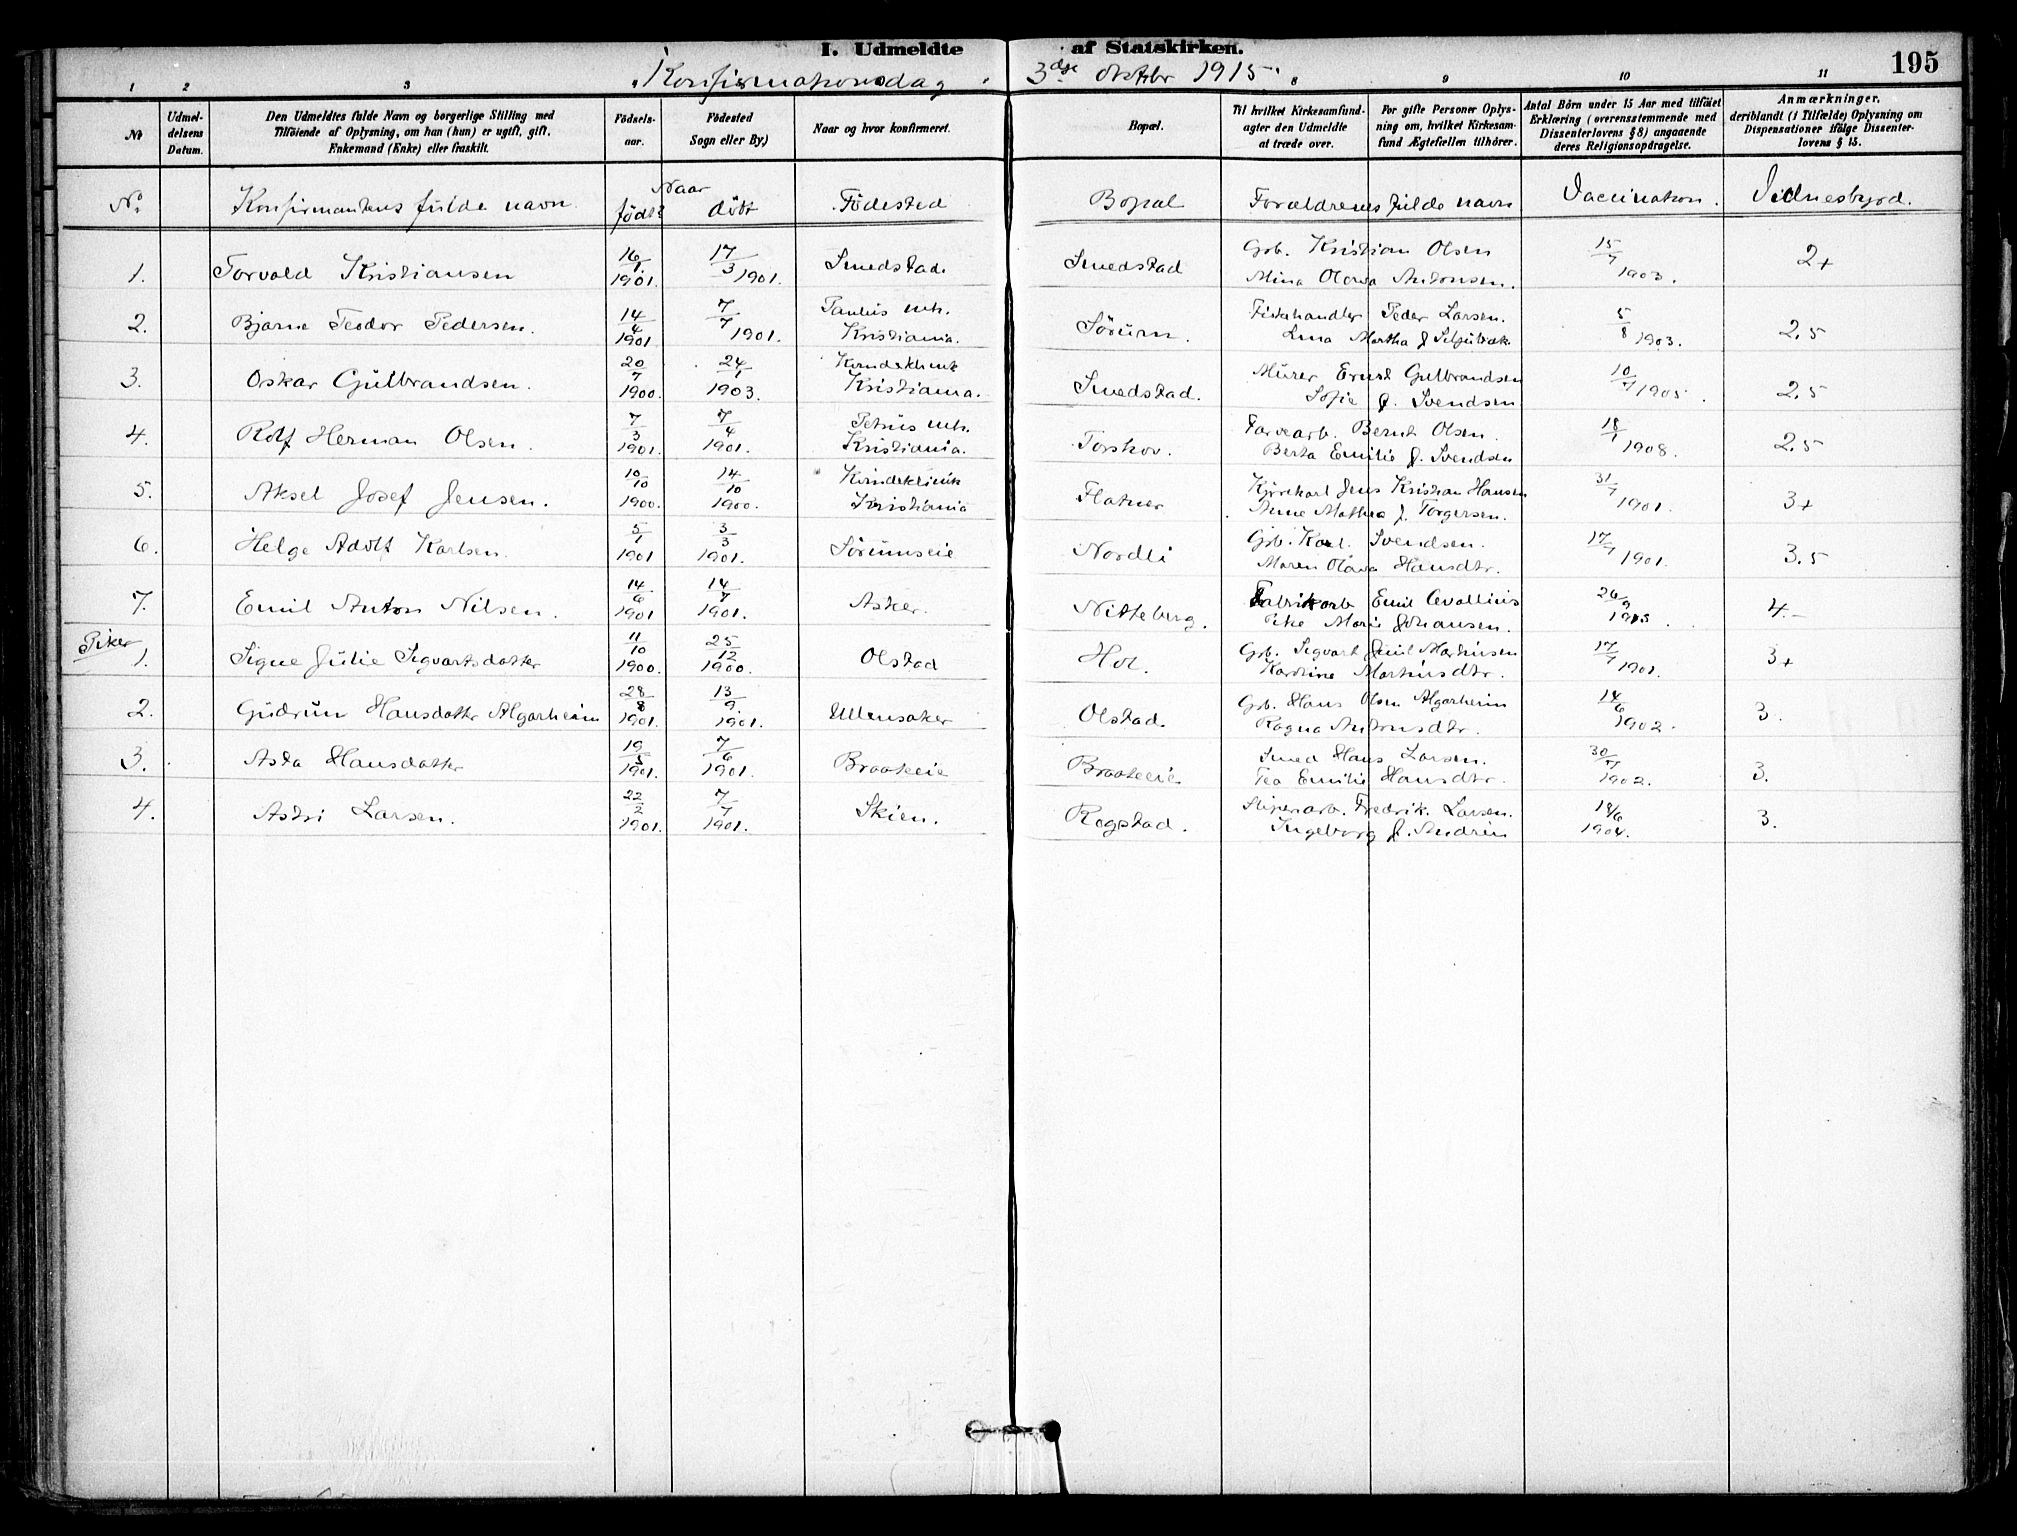 I. Udmeldte af Statskirken.
195
Konfirmationsdag 3die oktbr 1915.
1 2 3 8 9 10 11
№
Udmel-
delsens
Datum.
Den Udmeldtes fulde Navn og borgerlige Stilling med
Tilföiende af Oplysning, om han (hun) er ugift, gift.
Enkemand (Enke) eller fraskilt.
Födsels-
aar.
Födested
Sogn eller By,)
Naar og hvor konfirmeret.
Bopæl.
Til hvilket Kirkesamfund-
agter den Udmeldte
at træde over.
For gifte Personer Oplys-
ning om, hvilket Kirkesam-
fund Ægtefællen tilhörer.
Antal Börn under 15 Aar med tilföiet
Erklæring (overensstemmende med
Dissenterlovens § 8) angaaende
deres Religionsopdragelse.
Anmærkninger,
deriblandt (i Tilfælde) Oplysning om
Dispensationer ifölge Dissenter-
lovens § 15.
No. Konfirmantens fulde navn Naar født? døbt Födested Bopæl Forældrenes fulde navn Vaccination. Vidnesbyrd.
1. Torvald Kristiansen 16/1 1901. 17/3 1901. Smedstad. Smedstad Grb. Kristian Olsen 15/7 1903. 2+
Mina Olava Antonsen.
2. Bjarne Teodor Pedersen. 14/4 1901 7/7 1901. Paulus mh. Kristiania. Sørum. Fiskehandler Peder Larsen. 5/8 1903. 2,5
Lina Martha f.
3. Oskar Gulbrandsen. 20/7 1900. 24/1 1903. Kvindeklinik Kristiania. Smedstad. Murer Ernst Gulbrandsen 10/7 1905. 2,5
Sofie f. Svendsen
4. Rolf Herman Olsen. 7/3 1901. 7/4 1901. Petrus mh. Kristiania. Torshov. Farvearb. Bernt Olsen. 18/1 1908. 2,5
Berta Emilie f. Svendsen
5. Aksel Josef Jensen. 10/10 1900. 14/10 1900. Kvindeklinik Kristiania Flatner Kjørekarl Jens Kristian Hansen 31/7 1901. 3+
Anne Mathea f. Torgersen.
6. Helge Adolf Karlsen. 5/1 1901 3/3 1901. Sørumseie Nordli Grb. Karl Svendsen. 17/7 1901. 3.5
Maren Olava Hansdtr.
7. Emil Anton Nilsen. 14/6 1901 14/7 1901. Asker. Nitteberg. Fabrikarb Emil Cevallius 26/9 1915. 4.-
Pike Marie Johansen.
Piker
1. Signe Julie Sigvartsdatter 11/10 1900. 25/12 1900. Olstad Hol. Grb. Sigvart Emil Martinsen 17/7 1901. 3+
Karoline Martinsdtr.
2. Gudrun Hansdatter Algarheim 28/8 1901. 13/9. 1901. Ullensaker Olstad. Grb. Hans Olsen Algarheim 14/6 1902. 3.
Ragna Antonsdtr.
3. Asta Hansdatter 19/5 1901. 7/6 1901. Braateeie Braateeie Smed Hans Larsen. 30/7 1902. 3.
Tea Emilie Hansdtr.
4. Astri Larsen. 22/2 1901. 7/7 1901. Skien. Rogstad. Sliperarb. Fredrik Larsen. 18/6 1904. 3.
Ingeborg f. Andrin